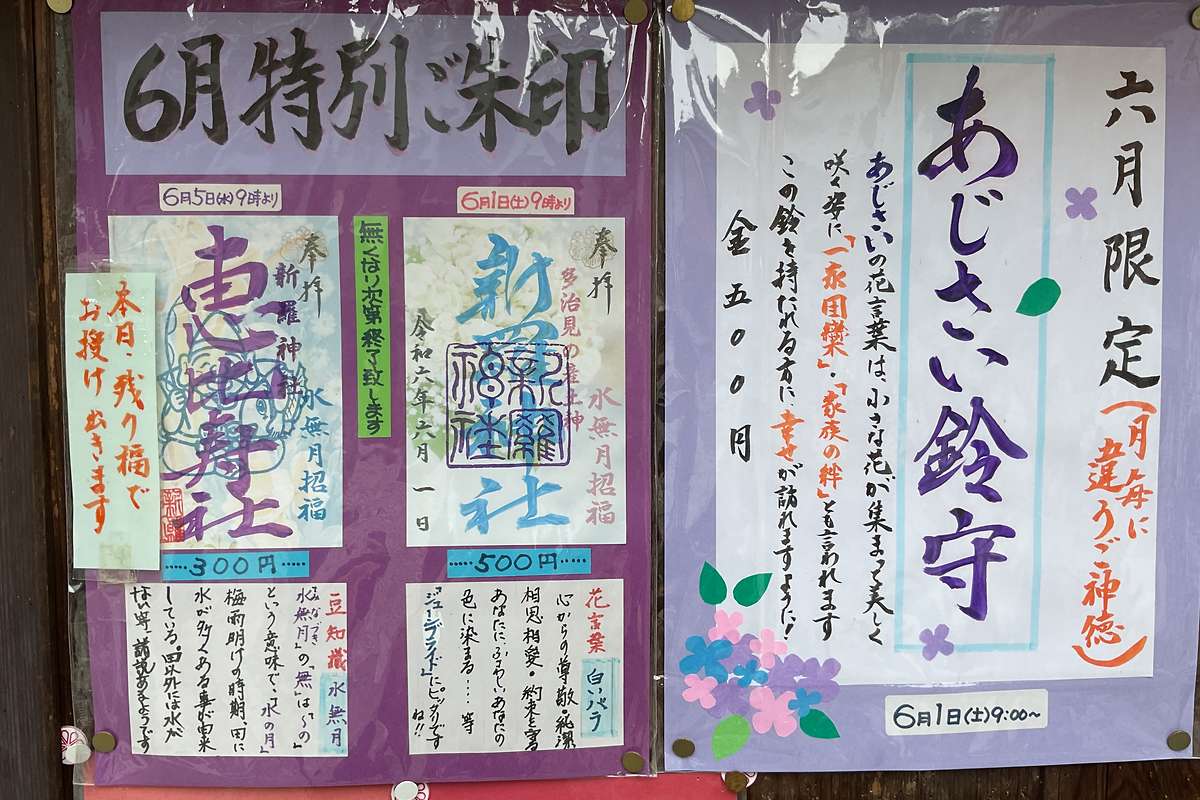 6月特別ご朱印
6月5日(水)9時より
奉拝
新羅神社
恵比寿社
水無月招福
300円
本日、残り福で
お授けできます
無くなり次第終了致します
6月1日(土)9時より
奉拝
多治見の産土神
新羅神社
水無月招福
令和六年六月一日
500円
豆知識 水無月
みなづき
水無月の「無」は「〜の」
という意味で、「水の月」
梅雨明けの時期、田に
水が多くある事が由来
している。田以外には水が
ない等、諸説あるようです
花言葉 白いバラ
心からの尊敬・純潔
相思相愛・約束を守る
あなたにふさわしいあなたの
色に染まる…等
「ジューンブライド」にピッタリです
ね!!
六月限定
(月毎に
違うご神徳)
あじさい鈴守
あじさいの花言葉は、小さな花が集まって美しく
咲く姿に「一家団欒」・「家族の絆」とも言われます
この鈴を持たれる方に、幸せが訪れますように!
金五00円
6月1日(土)9:00~